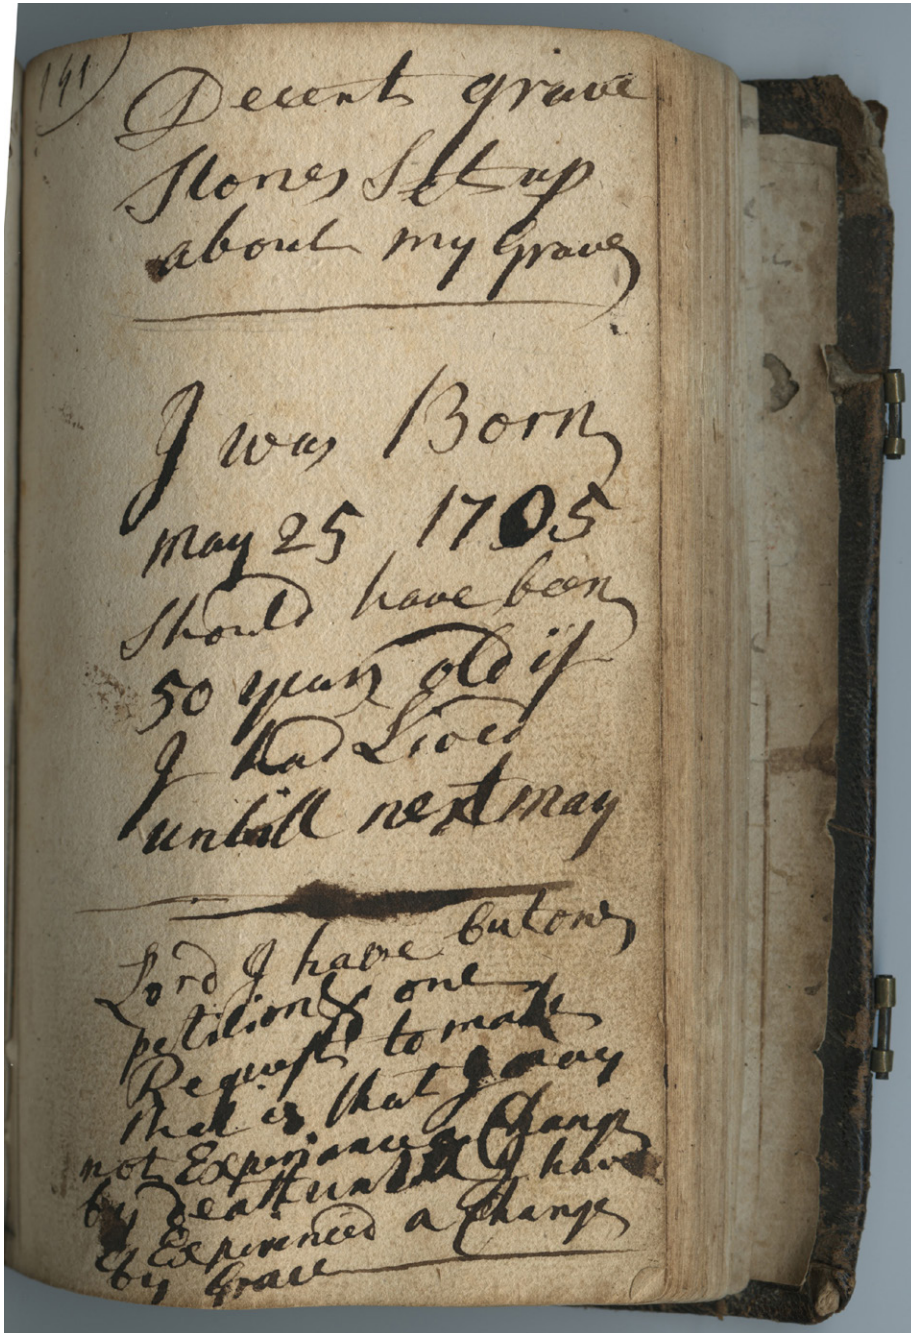 141
Decent grave
Stones Set up
about my Grave
I was Born
may 25 1705
Should have been
50 years old if
I had Lived
untill next may
Lord I have but one
petition & one
Request to make
that is that I may
not Experiance a Change
by Death untill I have
Experienced a Change
by Grace